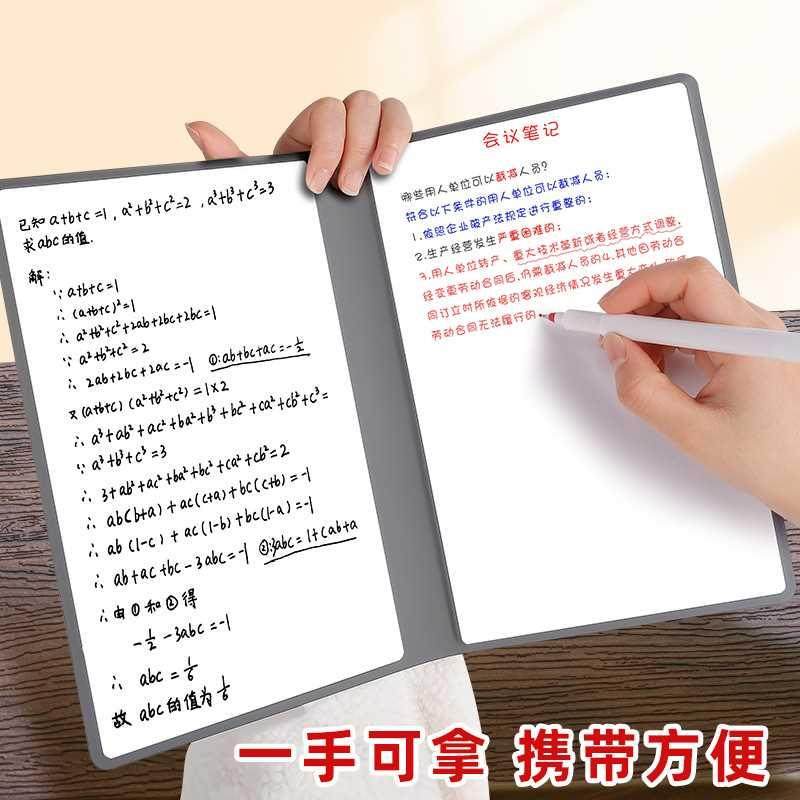 已知 a+b+c=1, a²+b²+c²=2, a³+b³+c³=3
求abc的值.
解:
∵ a+b+c=1
∴ (a+b+c)²=1
∴ a²+b²+c²+2ab+2bc+2bc=1
∵ a²+b²+c²=2
∴ 2ab+2bc+2ac=-1 ①:ab+bc+ac=-½
又(a+b+c)(a²+b²+c²)=1×2
∴ a³+ab²+ac²+ba²+b³+bc²+ca²+cb²+c³=
∵ a³+b³+c³=3
∴ 3+ab²+ac²+ba²+bc²+ca²+cb²=2
∴ ab(b+a)+ac(c+a)+bc(c+b)=-1
∴ ab(1-c)+ac(1-b)+bc(1-a)=-1
∴ ab+ac+bc-3abc=-1 ②:3abc=1+(ab+a
∴由①和②得
-½-3abc=-1
∴ abc=⅙
故 abc的值为⅙
会议笔记
哪些用人单位可以裁减人员?
符合以下条件的用人单位可以裁减人员:
1.依照企业破产法规定进行重整的;
2.生产经营发生严重困难的;
3.用人单位转产、重大技术革新或者经营方式调整,
经变更劳动合同后,仍需裁减人员的4.其他因劳动合
同订立时所依据的客观经济情况发生重大变化,致使
劳动合同无法履行的。
一手可拿 携带方便